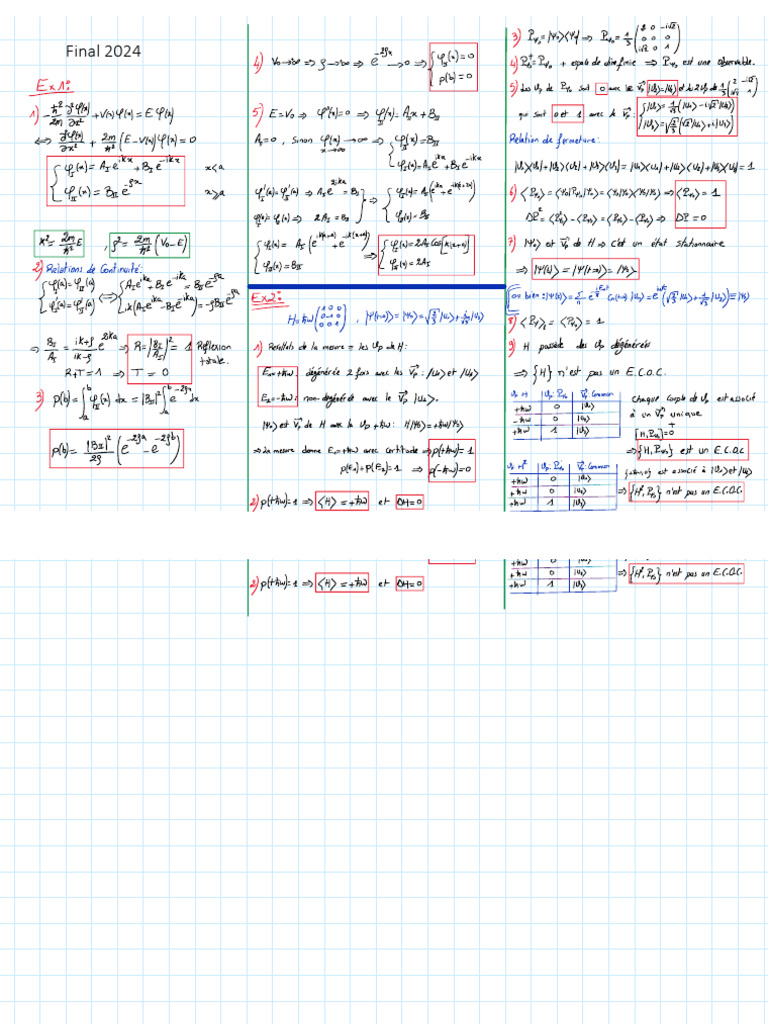 Final 2024
Ex1:
1) -ħ²/2m ∂²φ(x)/∂x² + V(x)φ(x) = E φ(x)
⇔ ∂²φ(x)/∂x² + 2m/ħ² (E - V(x))φ(x) = 0
{ φ_I(x) = A_I e^{ikx} + B_I e^{-ikx}   x<a
φ_II(x) = B_II e^{-ρx}   x⩾a
k² = 2m/ħ² E , ρ² = 2m/ħ² (V₀ - E)
2) Relations de Continuité:
{ φ_I(a) = φ_II(a) ⇔ { A_I e^{ika} + B_I e^{-ika} = B_II e^{-ρa}
φ'_I(a) = φ'_II(a)   ik(A_I e^{ika} - B_I e^{-ika}) = -ρ B_II e^{-ρa}
⇒ B_I/A_I = (ik+ρ)/(ik-ρ) e^{2ika} ⇒ R = |B_I/A_I|² = 1 Réflexion totale.
R+T=1 ⇒ T = 0
3) p(b) = ∫_a^b φ_II²(x) dx = |B_II|² ∫_a^b e^{-2ρx} dx
p(b) = |B_II|²/2ρ (e^{-2ρa} - e^{-2ρb})
4) V₀→∞ ⇒ ρ→∞ ⇒ e^{-2ρx} → 0 ⇒ { φ_II(x) = 0
p(b) = 0
5) E = V₀ ⇒ φ''(x) = 0 ⇒ φ_II(x) = A_II x + B_II
A_II = 0, Sinon φ(x) → ∞ x→∞ ⇒ { φ_II(x) = B_II
φ_I(x) = A_I e^{ikx} + B_I e^{-ikx}
φ'_I(a) = φ'_II(a) ⇒ A_I e^{2ika} = B_I } ⇒ { φ_I(x) = A_I (e^{ikx} + e^{-ik(x+2a)})
φ_I(a) = φ_II(a) ⇒ 2A_I = B_II   φ_II(x) = B_II
{ φ_I(x) = A_I (e^{ik(x+a)} + e^{-ik(x+a)}) ⇒ { φ_I(x) = 2A_I Cos[k(x+a)]
φ_II(x) = B_II   φ_II(x) = 2A_I
Ex2:
H = ħω (1 0 0
0 -1 0
0 0 1) , |Ψ(t=0)> = |Ψ₀> = √(2/3) |u₁> + i/√3 |u₃>
1) Resultats de la mesure = les Vp de H:
E₁ = +ħω, dégénérée 2 fois avec les V⃗p : |u₁> et |u₃>
E₂ = -ħω, non-dégénérée avec le V⃗p |u₂>.
|Ψ₀> est V⃗p de H avec la Vp +ħω : H|Ψ₀> = +ħω|Ψ₀>
⇒ La mesure donne E₁ = +ħω avec certitude ⇒ p(+ħω) = 1
p(E₁) + p(E₂) = 1 ⇒ p(-ħω) = 0
2) p(+ħω) = 1 ⇒ <H> = +ħω et ΔH = 0
3) P_Ψ₀ = |Ψ₀><Ψ₀| ⇒ P_Ψ₀ = 1/3 (2 0 -i√2
0 0 0
i√2 0 1)
4) P_Ψ₀⁺ = P_Ψ₀ + espace de dim finie ⇒ P_Ψ₀ est une observable.
5) Les Vp de P_Ψ₀ sont 0 avec le V⃗p |V₁> = |u₂> et les 2 Vp de 1/3 (2 -i√2
i√2 1)
qui sont 0 et 1 avec les V⃗p :
Relation de fermeture:
6) <P_Ψ₀> = <Ψ₀|P_Ψ₀|Ψ₀> = <Ψ₀|Ψ₀><Ψ₀|Ψ₀> ⇒ <P_Ψ₀> = 1
ΔP² = <P²_Ψ₀> - <P_Ψ₀>² = <P_Ψ₀> - <P_Ψ₀> ⇒ ΔP = 0
7) |Ψ₀> est V⃗p de H ⇒ c'est un état stationnaire
⇒ |Ψ(t)> = |Ψ(t=0)> = |Ψ₀>
8) <P_Ψ₀>_t = <P_Ψ₀> = 1
9) H possède des Vp dégénérées
⇒ {H} n'est pas un E.C.O.C.
Vp H | Vp P_Ψ₀ | V⃗p Commun
+ħω 0 |V₂>
-ħω 0 |u₂>
+ħω 1 |V₃>
Chaque couple de Vp est associé
à un V⃗p unique
[H, P_Ψ₀] = 0
⇒ {H, P_Ψ₀} est un E.C.O.C
Vp H² | Vp P_Ψ₀ | V⃗p Commun
+ħω 0 |V₂>
+ħω 0 |u₂>
+ħω 1 |V₃>
⇒ {H², P_Ψ₀} n'est pas un E.C.O.C.
2) p(+ħω) = 1 ⇒ <H> = +ħω et ΔH = 0
+ħω 0 |u₂>
+ħω 1 |V₃>
⇒ {H², P_Ψ₀} n'est pas un E.C.O.C.